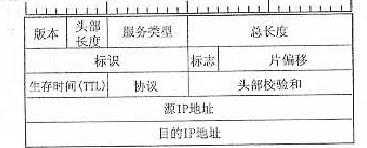 版本 头部长度 服务类型 总长度
标识 标志 片偏移
生存时间(TTL) 协议 头部校验和
源IP地址
目的IP地址